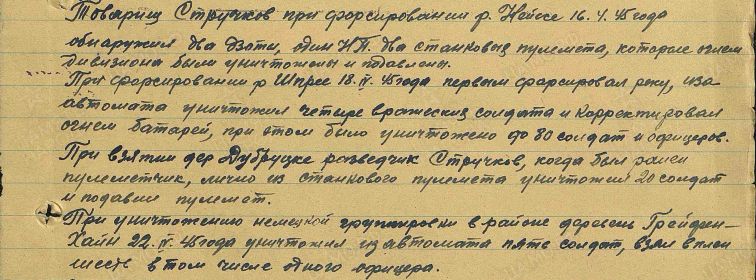 Товарищ Стручков при форсировании р. Нейсе 16.4.45 года
обнаружил два дзота, один НП. два станковых пулемета, которые огнем
дивизиона были уничтожены и подавлены.
При форсировании р Шпрее 18.IV.45 года первым форсировал реку, из
автомата уничтожил четыре вражеских солдата и корректировал
огнем батарей, при этом было уничтожено до 80 солдат и офицеров.
При взятии дер Дубруцке разведчик Стручков, когда был ранен
пулеметчик, лично из станкового пулемета уничтожил 20 солдат
и подавил пулемет.
При уничтожению немецкой группировки в районе деревень Грейфен-
Хайн 22.IV.45 года уничтожил из автомата пять солдат, взял в плен
шесть в том числе одного офицера.